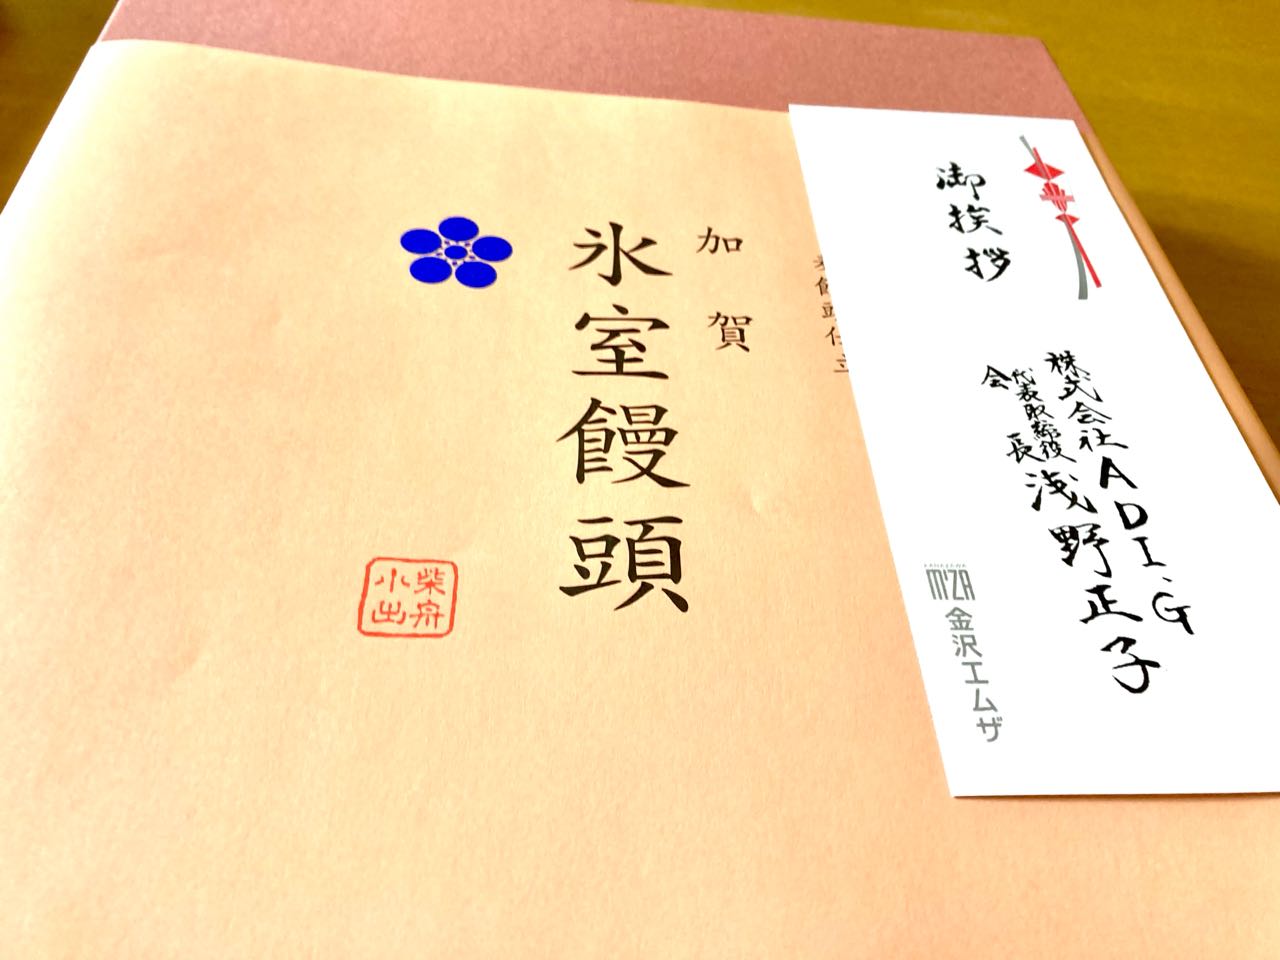 御挨拶
株式会社ADI.G
代表取締役
会長
浅野正子
KANAZAWA
M'ZA
金沢エムザ
加賀
氷室饅頭
柴舟
小出